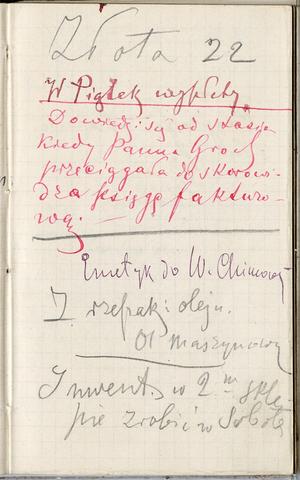 Złota 22
W Piątek wypłaty.
Dowiedz się od Stasia
kiedy Panna Groch
przeciągała do skorowi-
dza księgę fakturo-
wą. —
Emetyk do W.
I rzepak: oleju.
Ol maszynowy
Inwent. w 2m skle-
pie zrobić w Sobotę